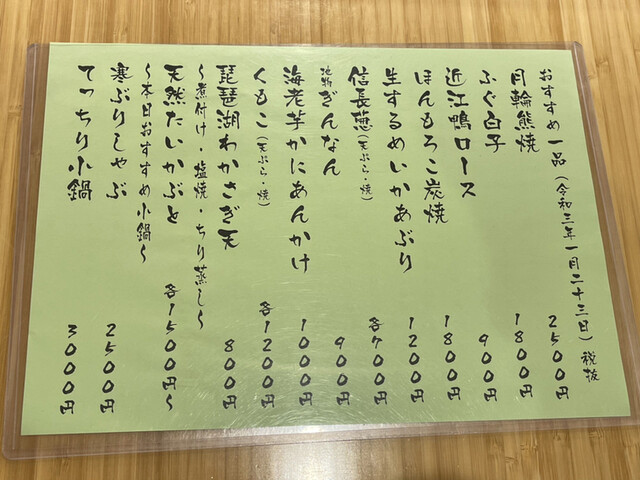 おすすめ一品(令和三年一月二十三日)税抜
月輪熊焼 2500円
ふぐ白子 1800円
近江鴨ロース 900円
ほんもろこ炭焼 1800円
生するめいかあぶり 1200円
信長葱(天ぷら・焼) 各700円
地物ぎんなん 900円
海老芋かにあんかけ 1000円
くもこ(天ぷら・焼) 各1200円
琵琶湖わかさぎ天 800円
〜煮付け・塩焼・ちり蒸し〜
天然たいかぶと 各1500円〜
〜本日おすすめ小鍋〜
寒ぶりしゃぶ 2500円
てっちり小鍋 3000円